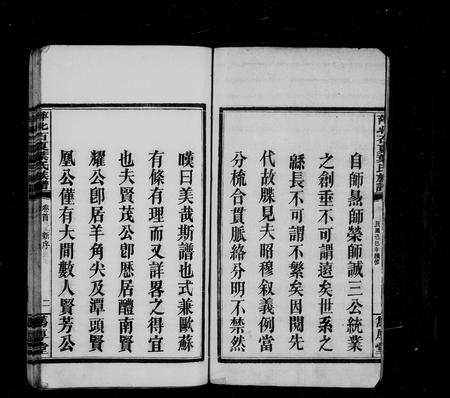 自師勗師榮師誠三公統業
之創垂不可謂遠矣世系之
緜長不可謂不繁矣因閱先
代故牒見夫昭穆叙義例當
分梳合貫脈絡分明不禁然
嘆曰美哉斯譜也式兼歐蘇
有條有理而又詳畧之得宜
也夫賢茂公卽歷居醴南賢
耀公卽居羊角尖及潭頭賢
凰公僅有大間數人賢芳公
萍北石夏葉氏族譜
卷首
新序
二
萬厚堂